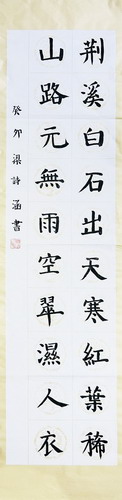 荆溪白石出天寒紅葉稀
山路元無雨空翠濕人衣
癸卯梁詩涵書